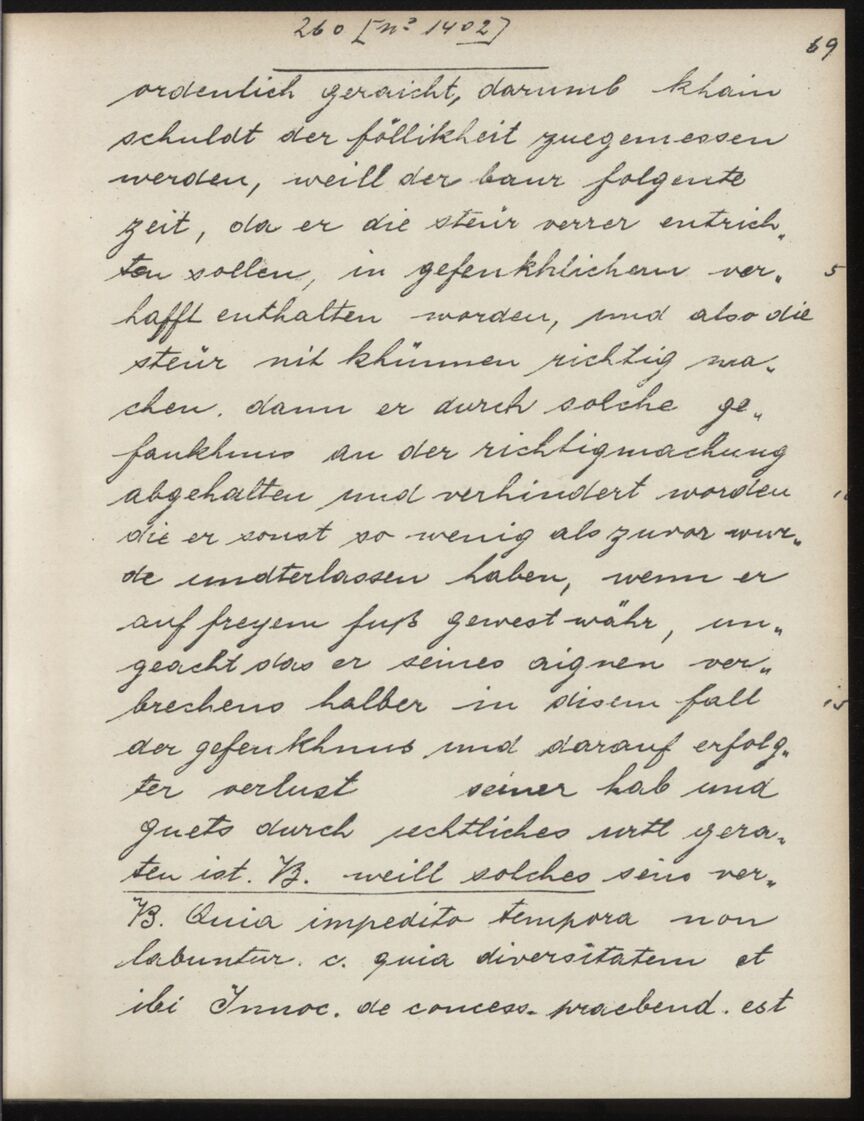 260 [nº 1402]
69
ordenlich geraicht, darumb khain
schuldt der föllikheit zuegemessen
werden, weill der baur folgente
zeit, da er die steür verrer entrich„
ten sollen, in gefenkhlichem ver„ 5
hafft enthalten worden, und also die
steür nit khünnen richtig ma„
chen. dann er durch solche ge„
fankhnus an der richtigmachung
abgehalten und verhindert worden
die er sonst so wenig als zuvor wur„
de undterlassen haben, wenn er
auf freyem fuß gewest währ, un„
geacht das er seines aignen ver„
brechens halber in disem fall 15
der gefenkhnus und darauf erfolg„
ter verlust seiner hab und
guets durch rechtliches urtl gera„
ten ist. B. weill solches sein ver„
B. Quia impedito tempora non
labuntur. c. quia diversitatem et
ibi Innoc. de concess. praebend. est